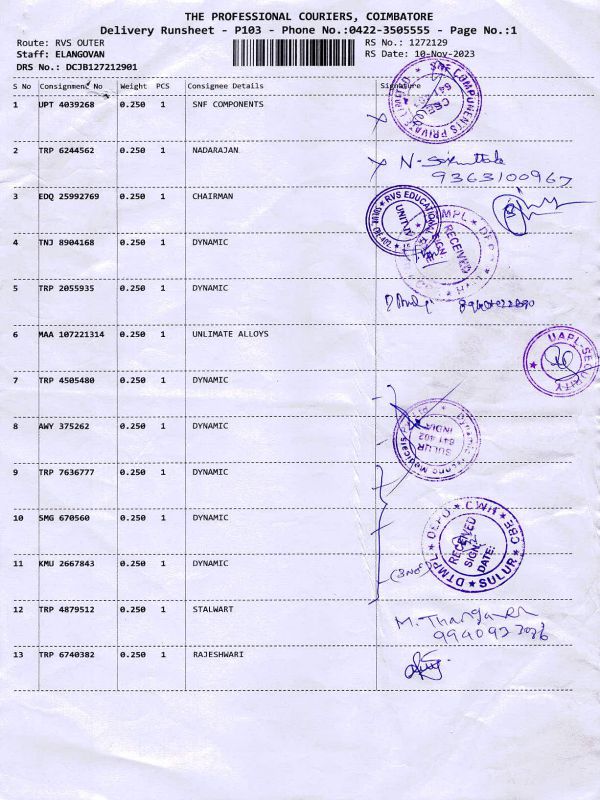 THE PROFESSIONAL COURIERS, COIMBATORE
Delivery Runsheet - P103 - Phone No.:0422-3505555 - Page No.:1
Route: RVS OUTER RS No.: 1272129
Staff: ELANGOVAN RS Date: 10-Nov-2023
DRS No.: DCJB127212901
S No Consignment No Weight PCS Consignee Details Signature
1 UPT 4039268 0.250 1 SNF COMPONENTS
SNF COMPONENTS PRIVATE LIMITED
2 TRP 6244562 0.250 1 NADARAJAN
9363100967
3 EDQ 25992769 0.250 1 CHAIRMAN
RVS EDUCATIONAL
4 TNJ 8904168 0.250 1 DYNAMIC
RECEIVED
5 TRP 2055935 0.250 1 DYNAMIC
6 MAA 107221314 0.250 1 UNLIMATE ALLOYS
UAPL-SECURITY
7 TRP 4505480 0.250 1 DYNAMIC
8 AWY 375262 0.250 1 DYNAMIC
SULUR
641 402
INDIA
9 TRP 7636777 0.250 1 DYNAMIC
10 SMG 670560 0.250 1 DYNAMIC
DTMPL * DEPO * CWH * CBE * SULUR
RECEIVED
SIGN:
DATE:
11 KMU 2667843 0.250 1 DYNAMIC
12 TRP 4879512 0.250 1 STALWART
13 TRP 6740382 0.250 1 RAJESHWARI